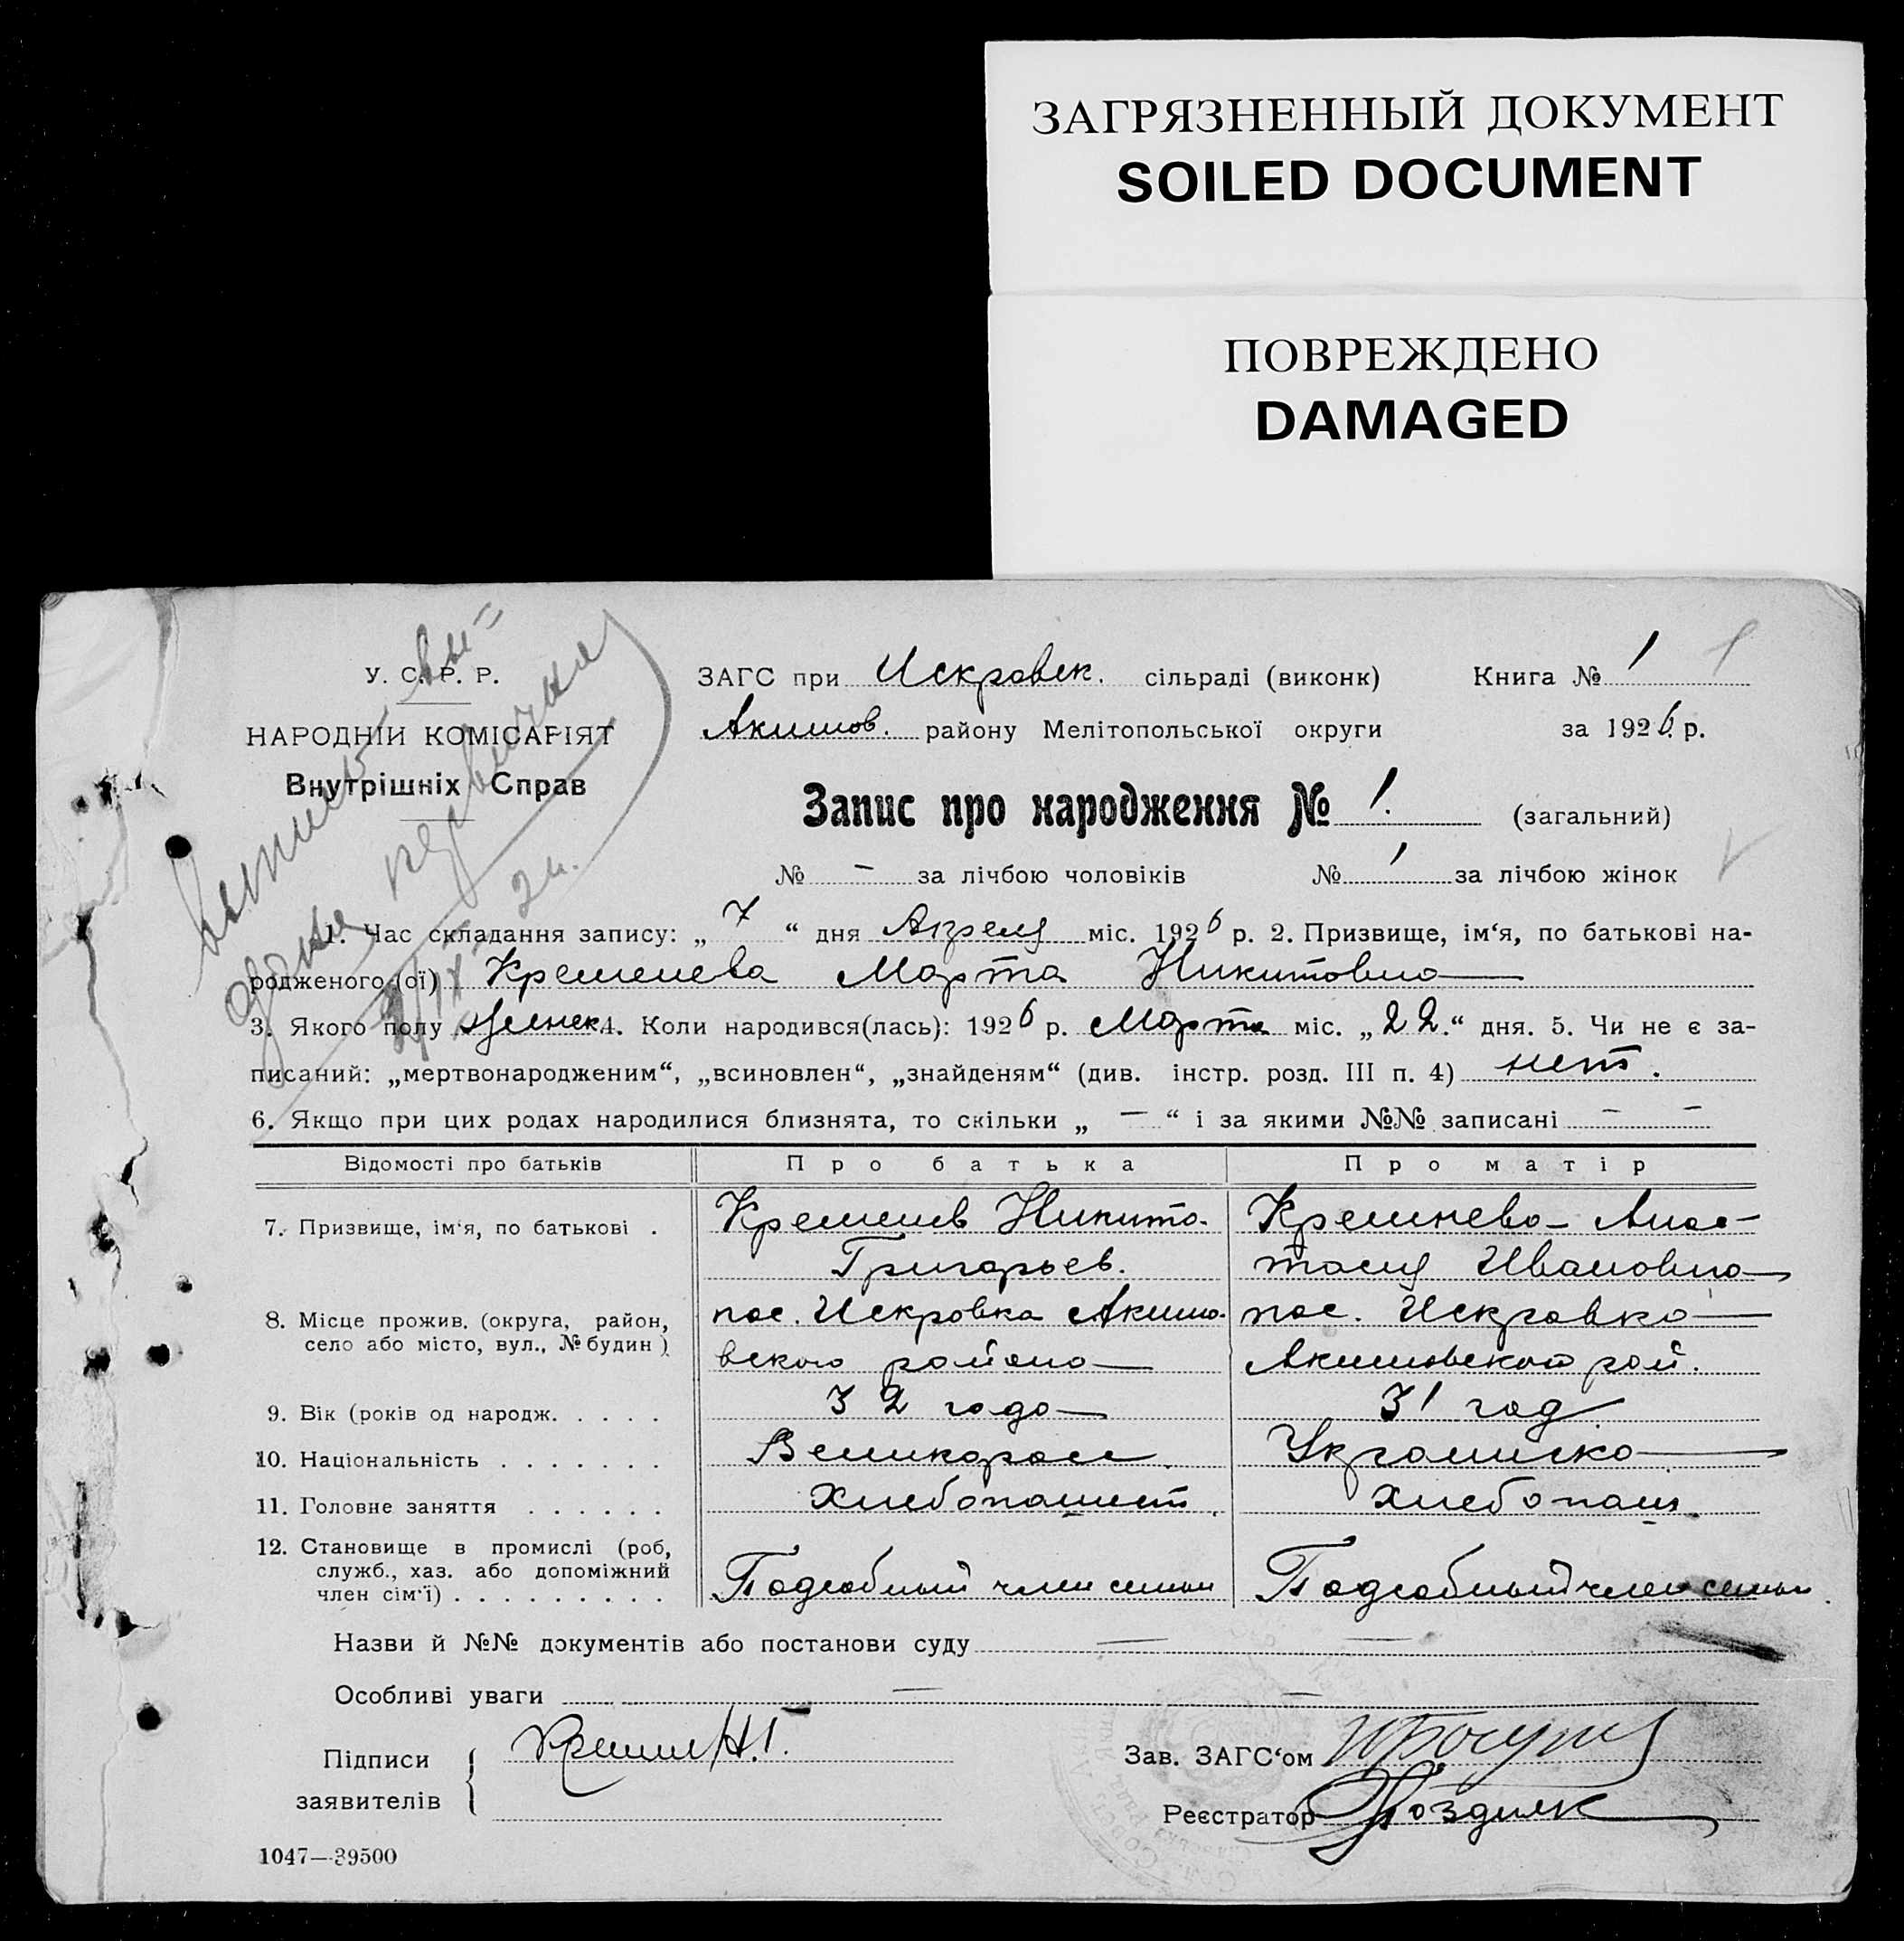 ЗАГРЯЗНЕННЫЙ ДОКУМЕНТ
SOILED DOCUMENT
ПОВРЕЖДЕНО
DAMAGED
У. С. Р. Р.
НАРОДНІЙ КОМІСАРІЯТ
Внутрішніх Справ
ЗАГС при Искровск. сільраді (виконк) Книга № 1 1
Акимов. району Мелітопольської округи за 1926 р.
Запис про народження № 1. (загальний)
№ – за лічбою чоловіків № 1 за лічбою жінок
1. Час складання запису: „7“ дня Апреля міс. 1926 р. 2. Призвище, ім‘я, по батькові на-
родженого (ої) Кремнева Марта Никитовна
3. Якого полу женск. 4. Коли народився(лась): 1926 р. Марта міс. „22.“ дня. 5. Чи не є за-
писаний: „мертвонародженим“, „всиновлен“, „знайденям“ (див. інстр. розд. III п. 4) нет.
6. Якщо при цих родах народилися близнята, то скільки „ — “ і за якими №№ записані – –
Відомості про батьків Про батька Про матір
7. Призвище, ім‘я, по батькові . Кремнев Никита Кремнева Анас-
Григорьев. тасия Ивановна
8. Місце прожив. (округа, район, пос. Искровка Акимо- пос. Искровка
село або місто, вул., № будин) вского района Акимовского рай.
9. Вік (років од народж. . . . . 32 года 31 год
10. Національність . . . . . . . Великоросс. Украинка
11. Головне заняття . . . . . . Хлебопашест. Хлебопаш.
12. Становище в промислі (роб,
служб., хаз. або допоміжний
член сім‘ї) . . . . . . . . . Подсобный член семьи Подсобный член семьи
Назви й №№ документів або постанови суду — —
Особливі уваги — —
Підписи Н.Г. Зав. ЗАГС‘ом
заявителів Реєстратор
1047—39500